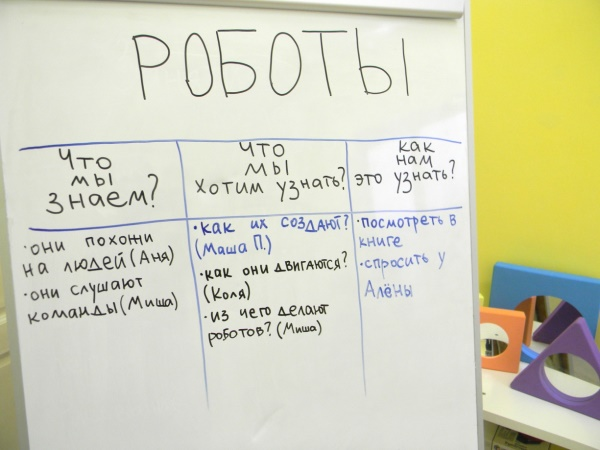 РОБОТЫ
Что
мы
знаем?
что
мы
хотим узнать?
как
нам
это узнать?
·они похожи
на людей(Аня)
·они слушают
команды(Миша)
·как их создают?
(Маша П.)
·как они двигаются?
(Коля)
·из чего делают
роботов? (Миша)
·посмотреть в
книге
·спросить у
Алёны